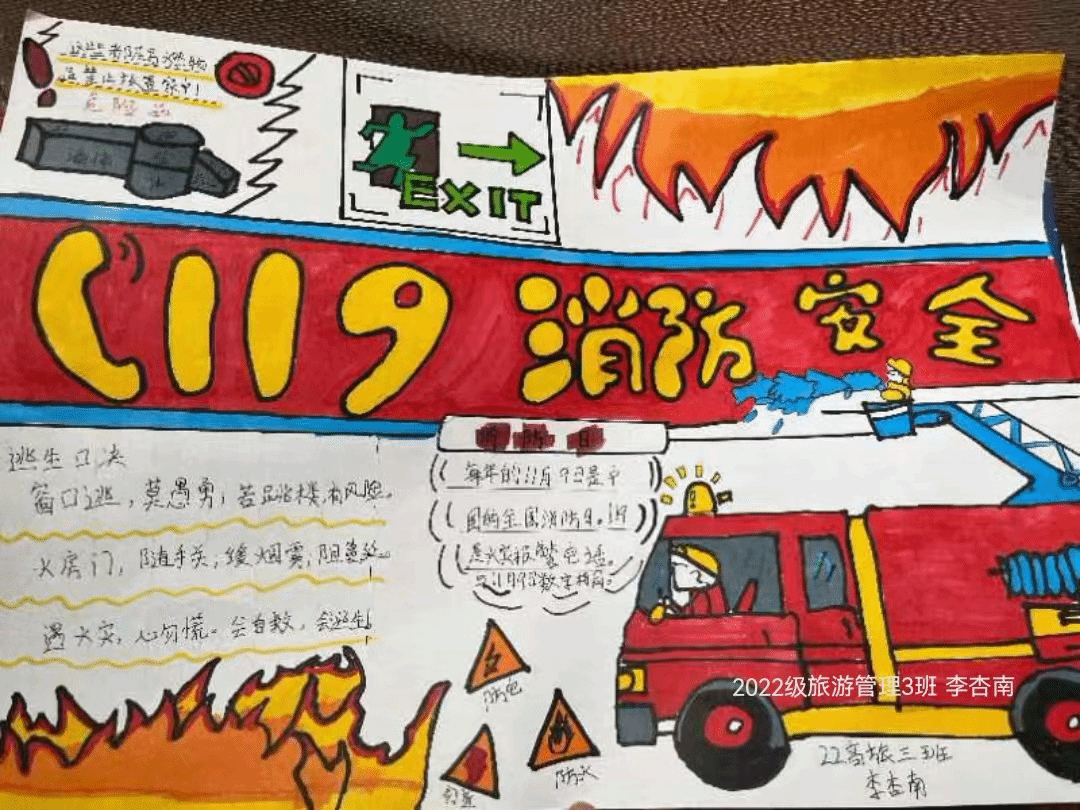 这些都属易燃物
这禁止放置家中!
危险品
油漆
EXIT
119消防安全
消防日
每年的11月9日是中
国的全国消防日。近
火灾报警电话。
逃生口决
窗口逃,莫愚勇,若是跳楼有风险。
火房门,随手关,缓烟雾,阻蔓延。
遇火灾,心勿慌。会自救,会逃生!
防电
防火
2022级旅游管理3班 李杏南
22高旅三班
李杏南